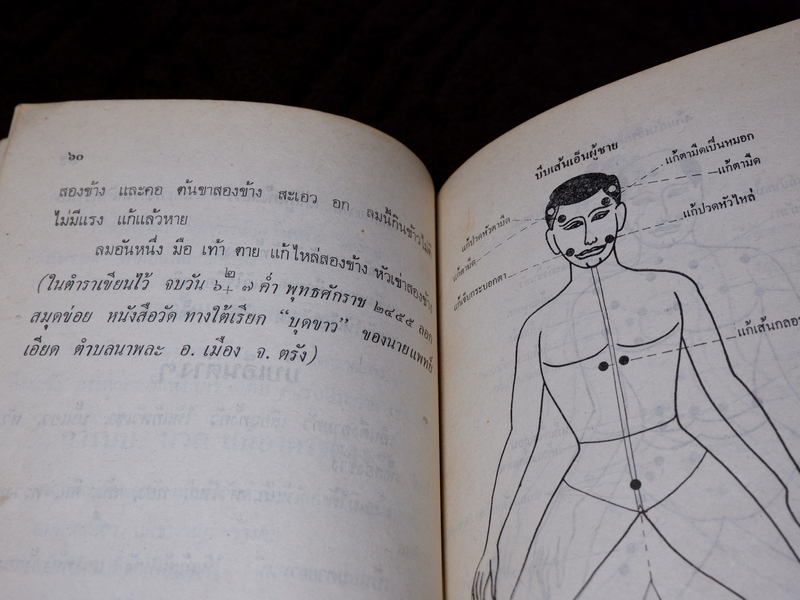 ๖๐
สองข้าง และคอ ต้นขาสองข้าง สะเอว อก ลมนี้กินข้าวไม่ได้
ไม่มีแรง แก้แล้วหาย
ลมอันหนึ่ง มือ เท้า ตาย แก้ไหล่สองข้าง หัวเข่าสองข้าง
(ในตำราเขียนไว้ จบวัน ๖ ๒ ๗ ค่ำ พุทธศักราช ๒๔๕๕ ลอก
สมุดข่อย หนังสือวัด ทางใต้เรียก “บุดขาว” ของนายแพทย์
เอียด ตำบลนาพละ อ. เมือง จ. ตรัง)
บีบเส้นเอ็นผู้ชาย
แก้ตามืดเป็นหมอก
แก้ตามืด
แก้ปวดหัวไหล่
แก้ปวดหัวตามืด
แก้ตามืด
แก้เจ็บกระบอกตา
แก้เส้นกลอน